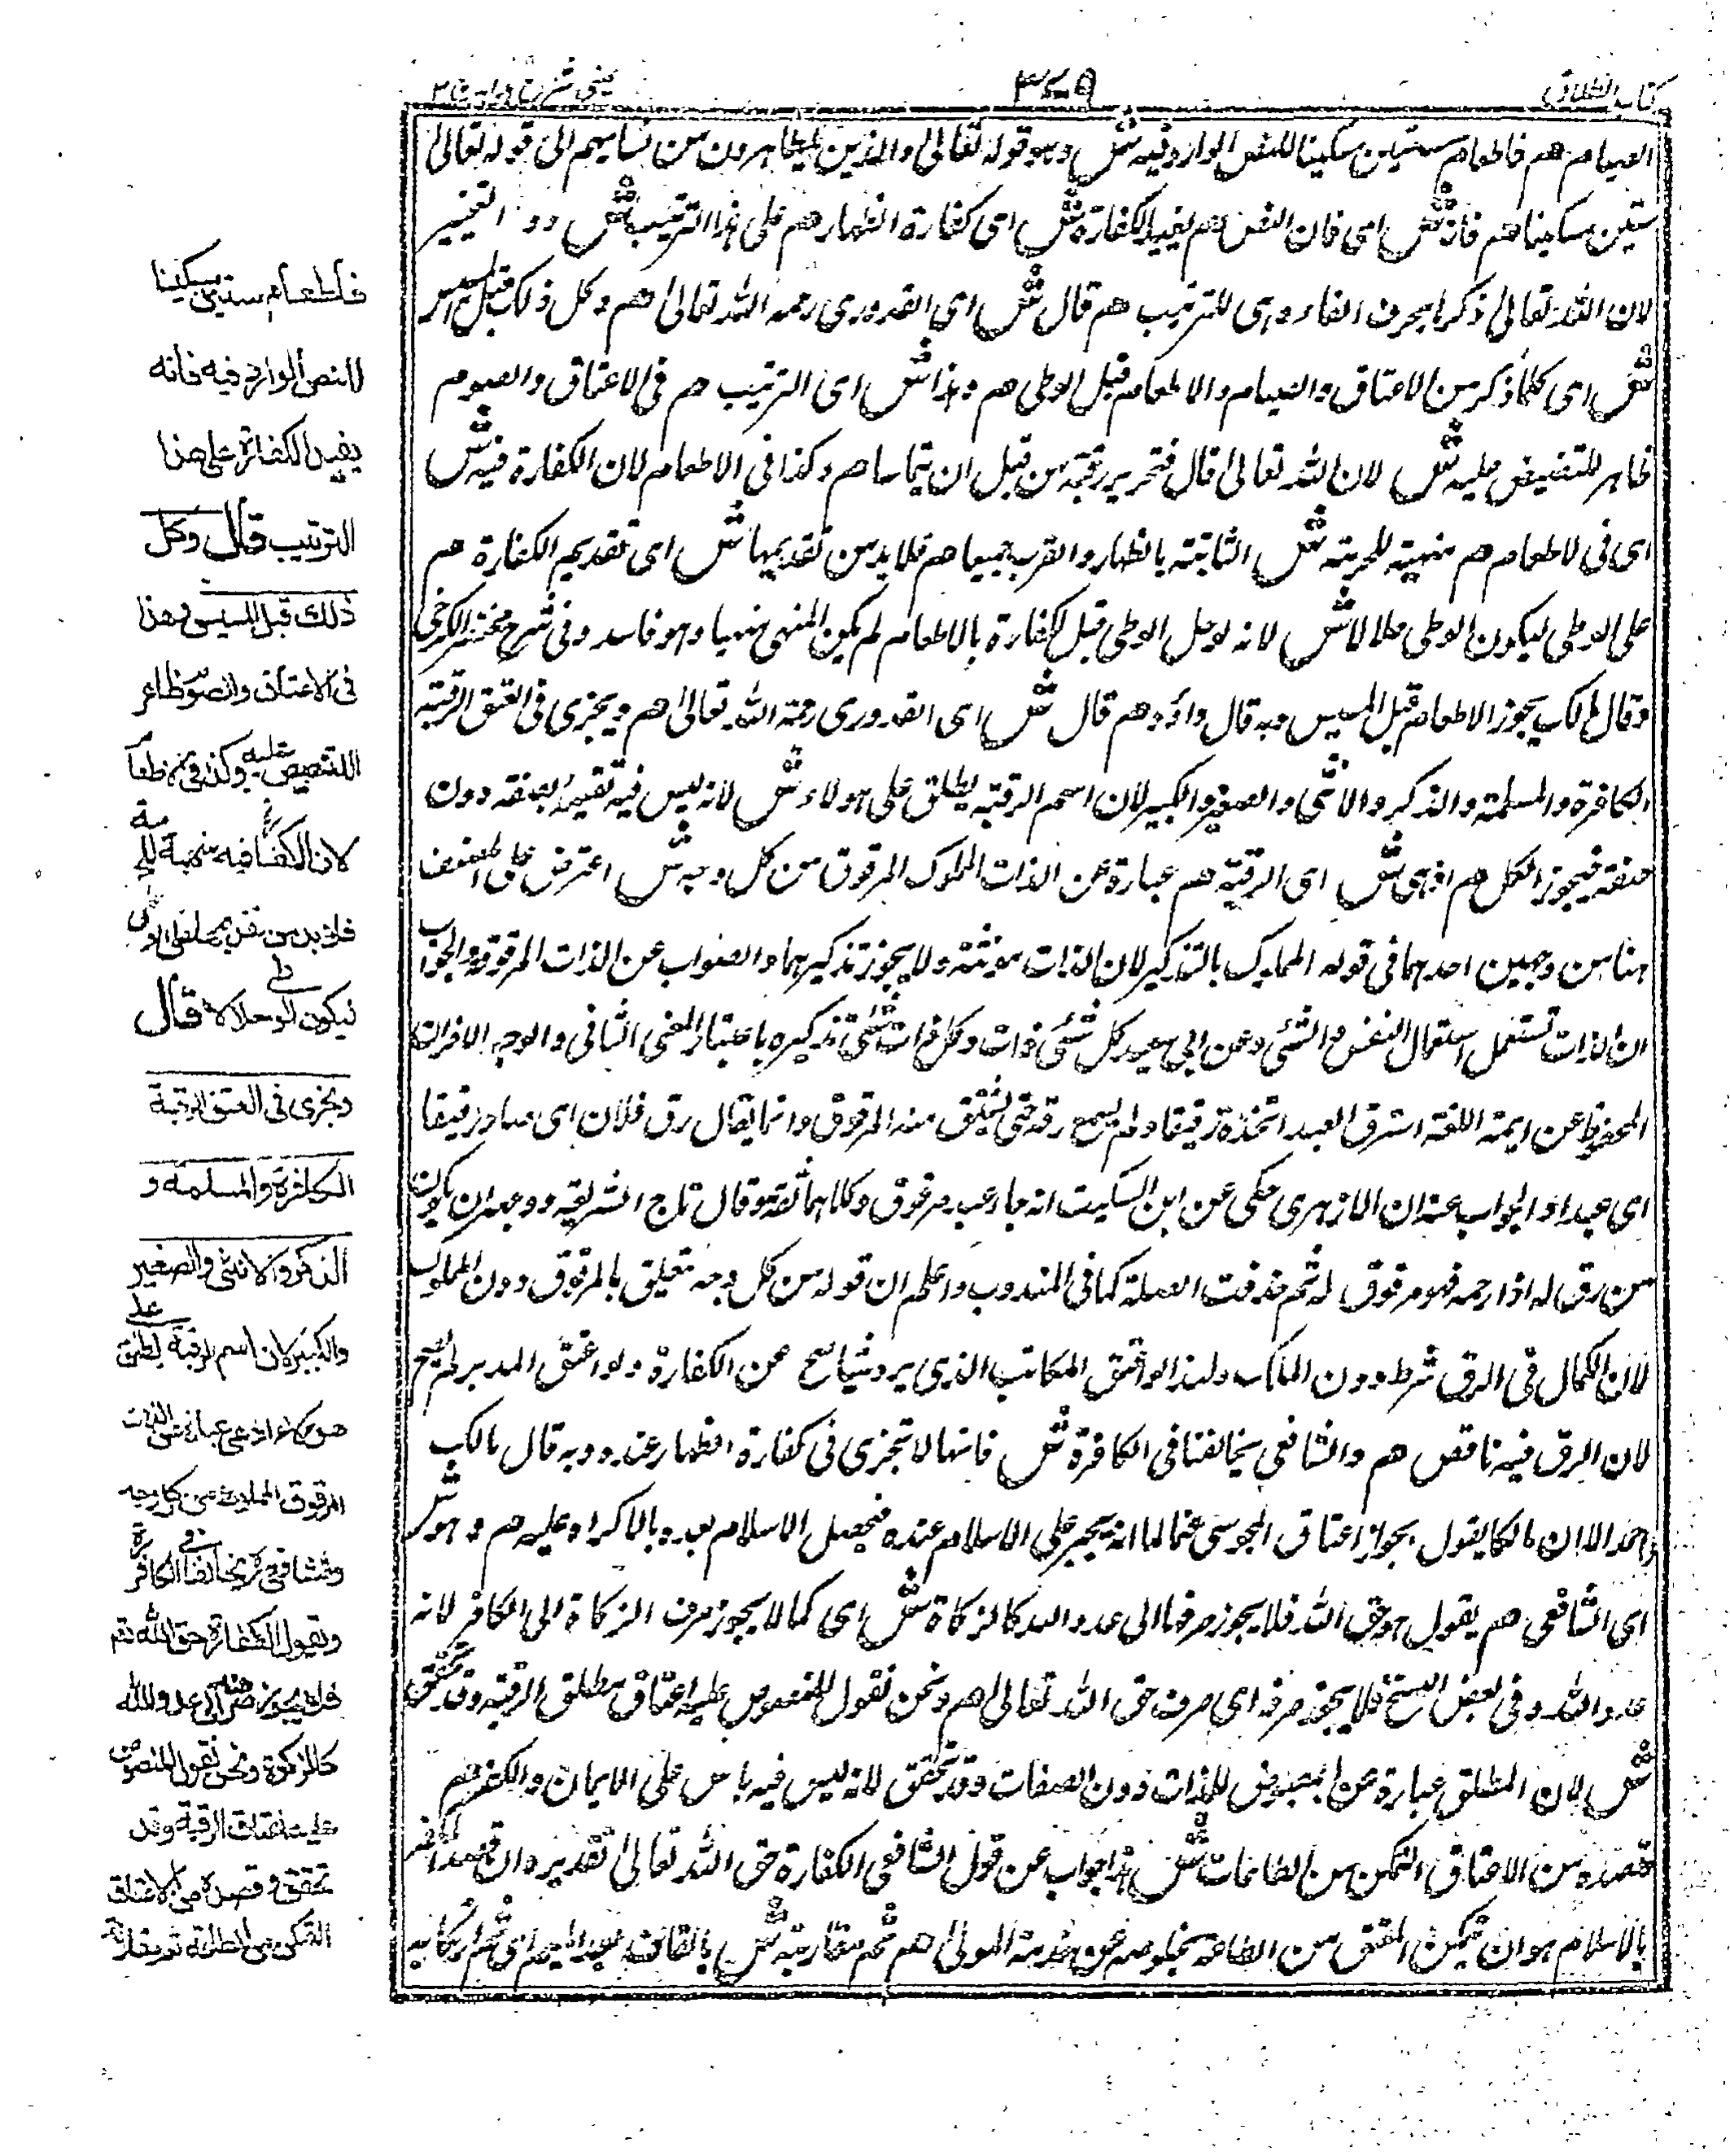 كتاب الطلاق
٣٧٩
عينى شرح هداية ج ٢
الصيام هم فاطعام ستين مسكينا للنص الوارد فيه ش وهو قوله تعالى والذين يظاهرون من نسائهم الى قوله تعالى
ستين مسكينا هم فانه ش اى فان النص هم يفيد الكفارة ش اى كفارة الظهار هم على هذا الترتيب ش دون التخيير
لان الله تعالى ذكرها بحرف الفاء وهى للترتيب هم قال ش اى القدورى رحمه الله تعالى هم وكل ذلك قبل المسيس
ش اى كلما ذكر من الاعتاق والصيام والاطعام قبل الوطى هم وهذا ش اى الترتيب هم فى الاعتاق والصوم
ظاهر للتنصيص عليه ش لان الله تعالى قال فتحرير رقبة من قبل ان يتماسا هم وكذا فى الاطعام لان الكفارة فيه ش
اى فى الاطعام هم منهية للحرمة ش الثابتة بالظهار والقرب جميعا هم فلا بد من تقديمها ش اى تقديم الكفارة هم
على الوطى ليكون الوطى حلالا ش لانه لو حل الوطى قبل الكفارة بالاطعام لم يكن المنهى منهيا وهو فاسد وفى شرح مختصر الكرخى
وقال مالك يجوز الاطعام قبل المسيس وبه قال داؤد هم قال ش اى القدورى رحمة الله تعالى هم ويجزى فى العتق الرقبة
الكافرة والمسلمة والذكر والانثى والصغير والكبير لان اسم الرقبة يطلق على هولاء ش لانه ليس فيه تقييد بصفة دون
صفة فيجوز الكل هم اذ هى ش اى الرقبة هم عبارة عن الذات المملوك المرقوق من كل وجه ش اعترض على المصنف
هنا من وجهين احدهما فى قوله المملوك بالتذكير لان الذات مونثة ولا يجوز تذكيرهما والصواب عن الذات المرقوقة والجواب
ان الذات تستعمل استعمال النفس والشئ وعن ابى سعيد كل شئ ذات وكل ذات شئ تذكيره باعتبار المعنى الثانى والوجه الاخر ان
المحفوظ عن ايمة اللغة استرق العبد اتخذه رقيقا ولم يسمع رقه حتى يشتق منه المرقوق وانما يقال رق فلان اى صار رقيقا
اى عبدا والجواب عنه ان الازهرى حكى عن ابن السكيت انه جاء عبد مرقوق وكلاهما ثقة وقال تاج الشريعة ووجهه ان يكون
من رق له اذا رحمه فهو مرقوق له ثم حذفت الصلة كما فى المندوب واعلم ان قوله من كل وجه متعلق بالمرقوق دون المملوك
لان الكمال فى الرق شرط دون الملك ولهذا لو اعتق المكاتب الذى لم يرد شيا صح عن الكفارة ولو اعتق المدبر لم يصح
لان الرق فيه ناقص هم والشافعى يخالفنا فى الكافرة ش فانها لا تجزى فى كفارة الظهار عنده وبه قال مالك
واحمد الا ان مالكا يقول بجواز اعتاق المجوسى لما انه يجبر على الاسلام عنده فيحصل الاسلام بعده بالاكراه عليه هم وهو ش
اى الشافعى هم يقول هو حق الله فلا يجوز صرفها الى عدو الله كالزكاة ش اى كما لا يجوز صرف الزكاة الى الكافر لانه
عدو الله وفى بعض النسخ فلا يجوز صرفه اى صرف حق الله تعالى هم ونحن نقول المنصوص عليه اعتاق مطلق الرقبة وقد تحقق
ش لان المطلق عبارة عن المتعرض للذات دون الصفات وقد تحقق لانه ليس فيه ما يدل على الايمان والكفر هم
وقصده من الاعتاق التمكن من الطاعات ش هذا جواب عن قول الشافعى الكفارة حق الله تعالى تقديره ان قصد المكفر
بالاسلام هو ان يتمكن المعتق من الطاعة بخلوصه عن خدمة المولى هم ثم مقارنته ش بالقاف بعد الميم اى ثم ارتكابه
فاطعام ستين مسكينا
للنص الوارد فيه فانه
يفيد الكفارة على هذا
الترتيب قال وكل
ذلك قبل المسيس وهذا
فى الاعتاق والصوم ظاهر
للتنصيص عليه وكذا فى الاطعام
لان الكفارة فيه منهية للحرمة
فلا بد من تقديمها على الوطى
ليكون الوطى حلالا قال
ويجزى فى العتق الرقبة
الكافرة والمسلمة و
الذكر والانثى والصغير
والكبير لان اسم الرقبة يطلق على
هولاء اذ هى عبارة عن الذات
المرقوق المملوك من كل وجه
والشافعى يخالفنا فى الكافرة
ويقول الكفارة حق الله تعم
فلا يجوز صرفه الى عدو الله
كالزكوة ونحن نقول المنصوص
عليه اعتاق الرقبة وقد
تحقق وقصده من الاعتاق
التمكن من الطاعة ثم مقارنته